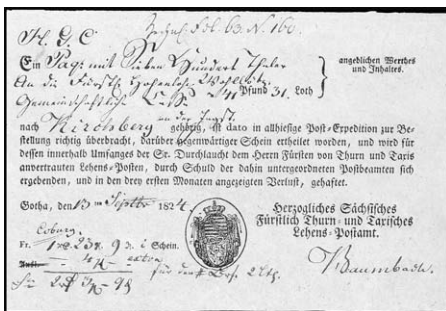 H. G. C
Fol. 63. N. 160.
Ein Paq: mit Sieben Hundert Thaler
angeblichen Werthes
und Inhaltes.
An die Fürstl. Hohenlohe
Gemeinschaftliche
41 Pfund 31 Loth
an der Jagst.
nach Kirchberg gehörig, ist dato in allhiesige Post-Expedition zur Be-
stellung richtig überbracht, darüber gegenwärtiger Schein ertheilet worden, und wird für
dessen innerhalb Umfanges der Sr. Durchlaucht dem Herrn Fürsten von Thurn und Taxis
anvertrauten Lehens-Posten, durch Schuld der dahin untergeordneten Postbeamten sich
ergebenden, und in den drey ersten Monaten angezeigten Verlust, gehaftet.
Gotha, den 13 Septbr 1824.
Herzogliches Sächsisches
Fürstlich Thurn- und Taxisches
Lehens-Postamt.
Coburg.
Fr. 9 Schein.
extra
Baumbach.